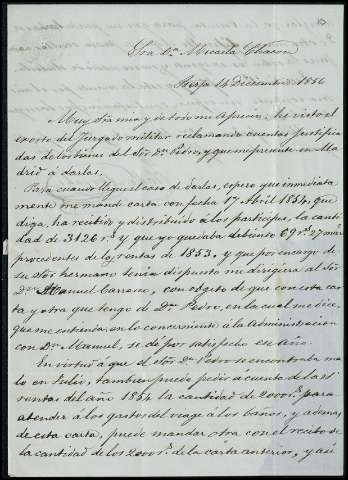 Sra Da. Micaela Chacon
14 Diciembre 1856
Muy Sra mia y de todo mi aprecio: he visto el
exorto del Juzgado militar reclamando cuentas justifica
das de los bienes del Sor Dn. Pedro, y que me presente en Ma
drid a darlas.
Para cuando llegue el caso de darlas, espero que inmediata
mente me mande carta con fecha 17 Abril 1854, que
diga, ha recibido y distribuido á los participes, la canti
dad de 3126 rs. y que yo quedaba debiendo 69 rs. 27 mrs
procedentes de las rentas de 1853, y que por encargo de
su Sor hermano tenia dispuesto me dirigiera al Sor
Dn. Manuel Carrasco, con objeto de que con esta car
ta y otra que tengo de Dn. Pedro, en la cual me dice,
que me entienda en lo concerniente á la administracion
con Dn. Manuel, se dé por satisfecho ese año.
En virtud á que el Sor Dn. Pedro se encontraba ma
lo en Julio, tambien puede pedir á cuenta de las
rentas del año 1854 la cantidad de 2000 rs. para
atender á los gastos del viage á los baños, y ademas,
de esta carta, puede mandar otra con el recibo de
la cantidad de los 2000 rs. de la carta anterior, y asi